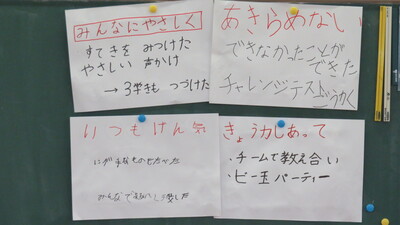 みんなにやさしく
すてきをみつけた
やさしい
→3学きも つづけた
あきらめない
できなかったことが
できた
チャレンジテスト
ごうかく
いつもげん気
きょう力しあって
・チームで教え合い
・ビー玉パーティー